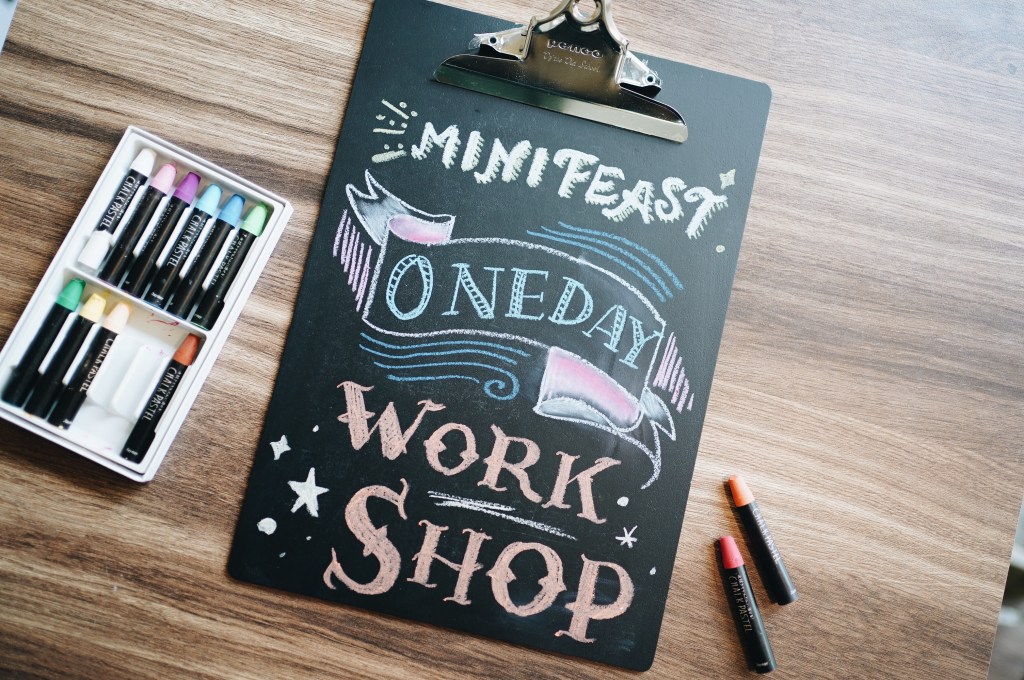 penco
MINIFEAST
ONEDAY
WORK
SHOP
CHALK PASTEL
CHALK PASTEL
CHALK PASTEL
CHALK PASTEL
CHALK PASTEL